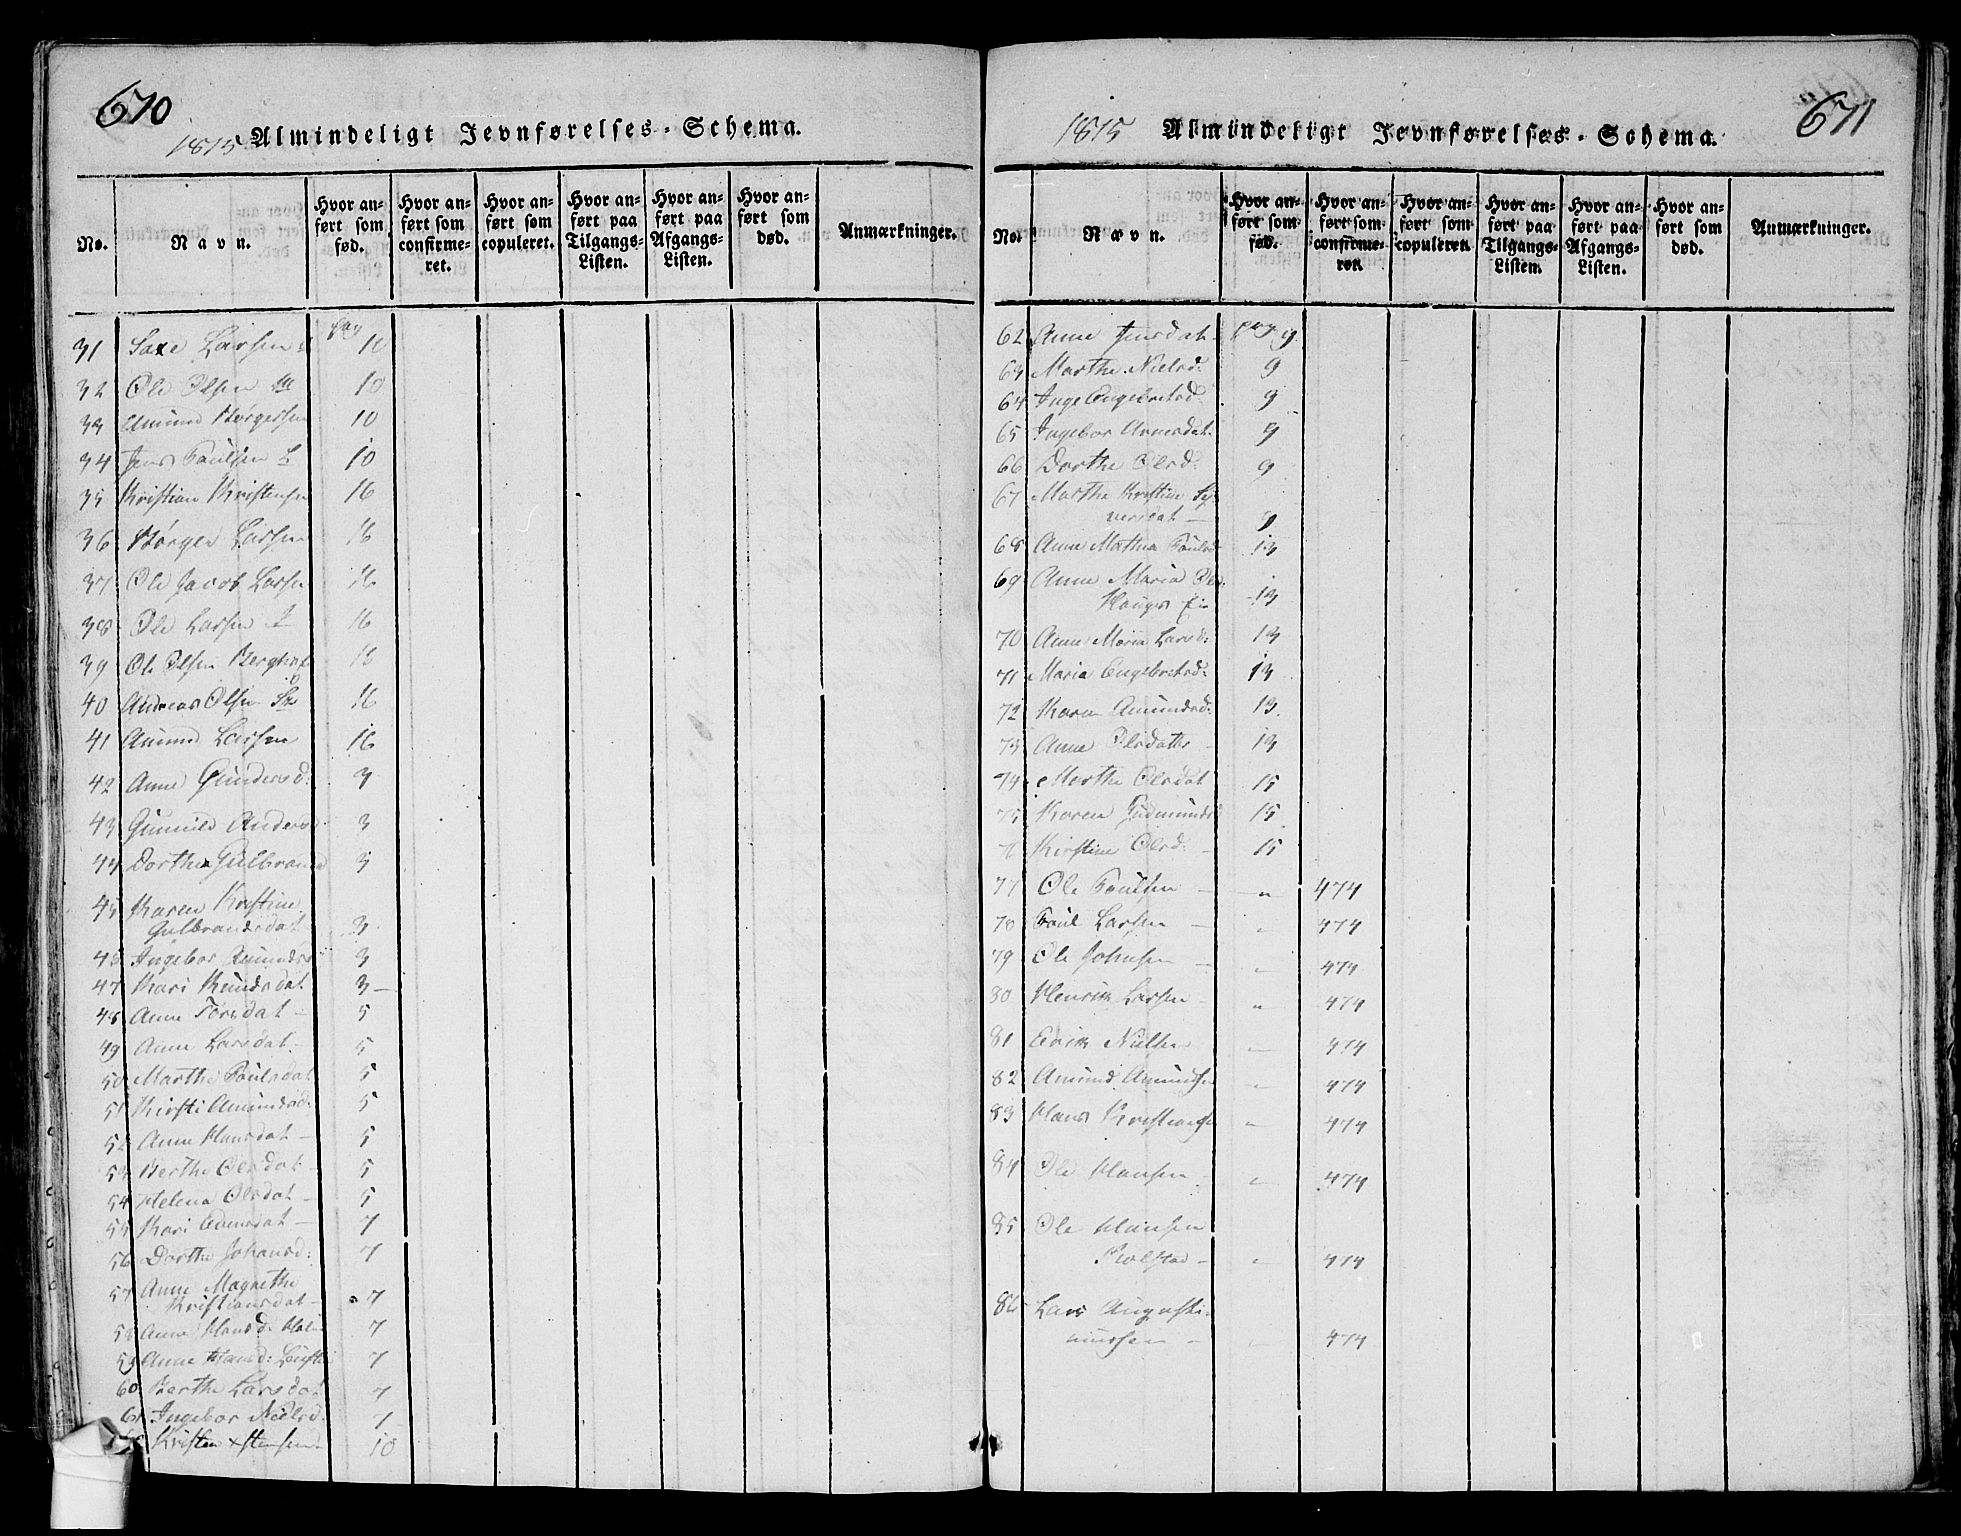 670
1815 Almindeligt Jevnførelses-Schema.
No.
Navn.
Hvor an-
ført som
fød.
Hvor an-
ført som
confirme-
ret.
Hvor an-
ført som
copuleret.
Hvor an-
ført paa
Tilgangs-
Listen.
Hvor an-
ført paa
Afgangs-
Listen.
Hvor an-
ført som
død.
Anmærkninger.
pag
31 Saxe Larsen 10
32 Ole Olsen 10
33 Amund Børgersen 10
34 Jens Poulsen 10
35 Kristian Kristensen 16
36 Børger Larsen 16
37 Ole Jacob Larsen 16
38 Ole Larsen 16
39 Ole Olsen 16
40 Andreas Olsen 16
41 Amund Larsen 16
42 Anne Gundersd: 3
43 Gunnild Andersd 3
44 Dorthea Gulbrands 3
45 Karen Kristine
Gulbrandsdat 3
46 Ingebor Amundsd 3
47 Kari Knudsdat 3 -
48 Anne Torsdat - 5
49 Anne Larsdat. 5
50 Marthe Poulsdat 5
51 Kirsti Amundsd: 5
52 Anne Hansdat - 5
53 Berthe Olesdat 5
54 Helena Olsdat - 5
55 Kari Evensdat - 7
56 Dorthe Johansd: 7
57 Anne Magnethe
Kristiansdat - 7
58 Anne Hansd: 7
59 Anne Hansd: 7
60 Berthe Larsdat 7
61 Ingebor Nielsd 7
Kristen Stensen 10
671
1815 Almindeligt Jevnførelses-Schema.
No.
Navn.
Hvor an-
ført som
fød.
Hvor an-
ført som
confirme-
ret.
Hvor an-
ført som
copuleret.
Hvor an-
ført paa
Tilgangs-
Listen.
Hvor an-
ført paa
Afgangs-
Listen.
Hvor an-
ført som
død.
Anmærkninger.
62 Anne Jensdat pag 9.
63 Marthe Nielsd: 9
64 Inge Engebretsd 9
65 Ingebor Arnesdat. 9
66 Dorthe Olsd: 9
67 Marthe Kristine Sy
versdat - 9
68 Anne Mathea Poulsd 13
69 Anne Maria Ols
13
70 Anne Maria Larsd: 13
71 Maria Engebretsd: 13
72 Karen Amundsd: 13.
73 Anne Olsdatter - 13
74 Marthe Olsdat 15
75 Karen Gudmunds 15
76 Kirstine Olsd: - 15
77 Ole Poulsen - " 474
78 Poul Larsen - - 474
79 Ole Johnsen - - 474
80 Henrik Larsen - " 474
81 Edvik Nielsen - 474
82 Amund Amundsen - 474
83 Hans Kristiansen - 474
84 Ole Hansen - 474
85 Ole Hansen
Kolstad - - 474
86 Lars Augusti-
nussen - - 474